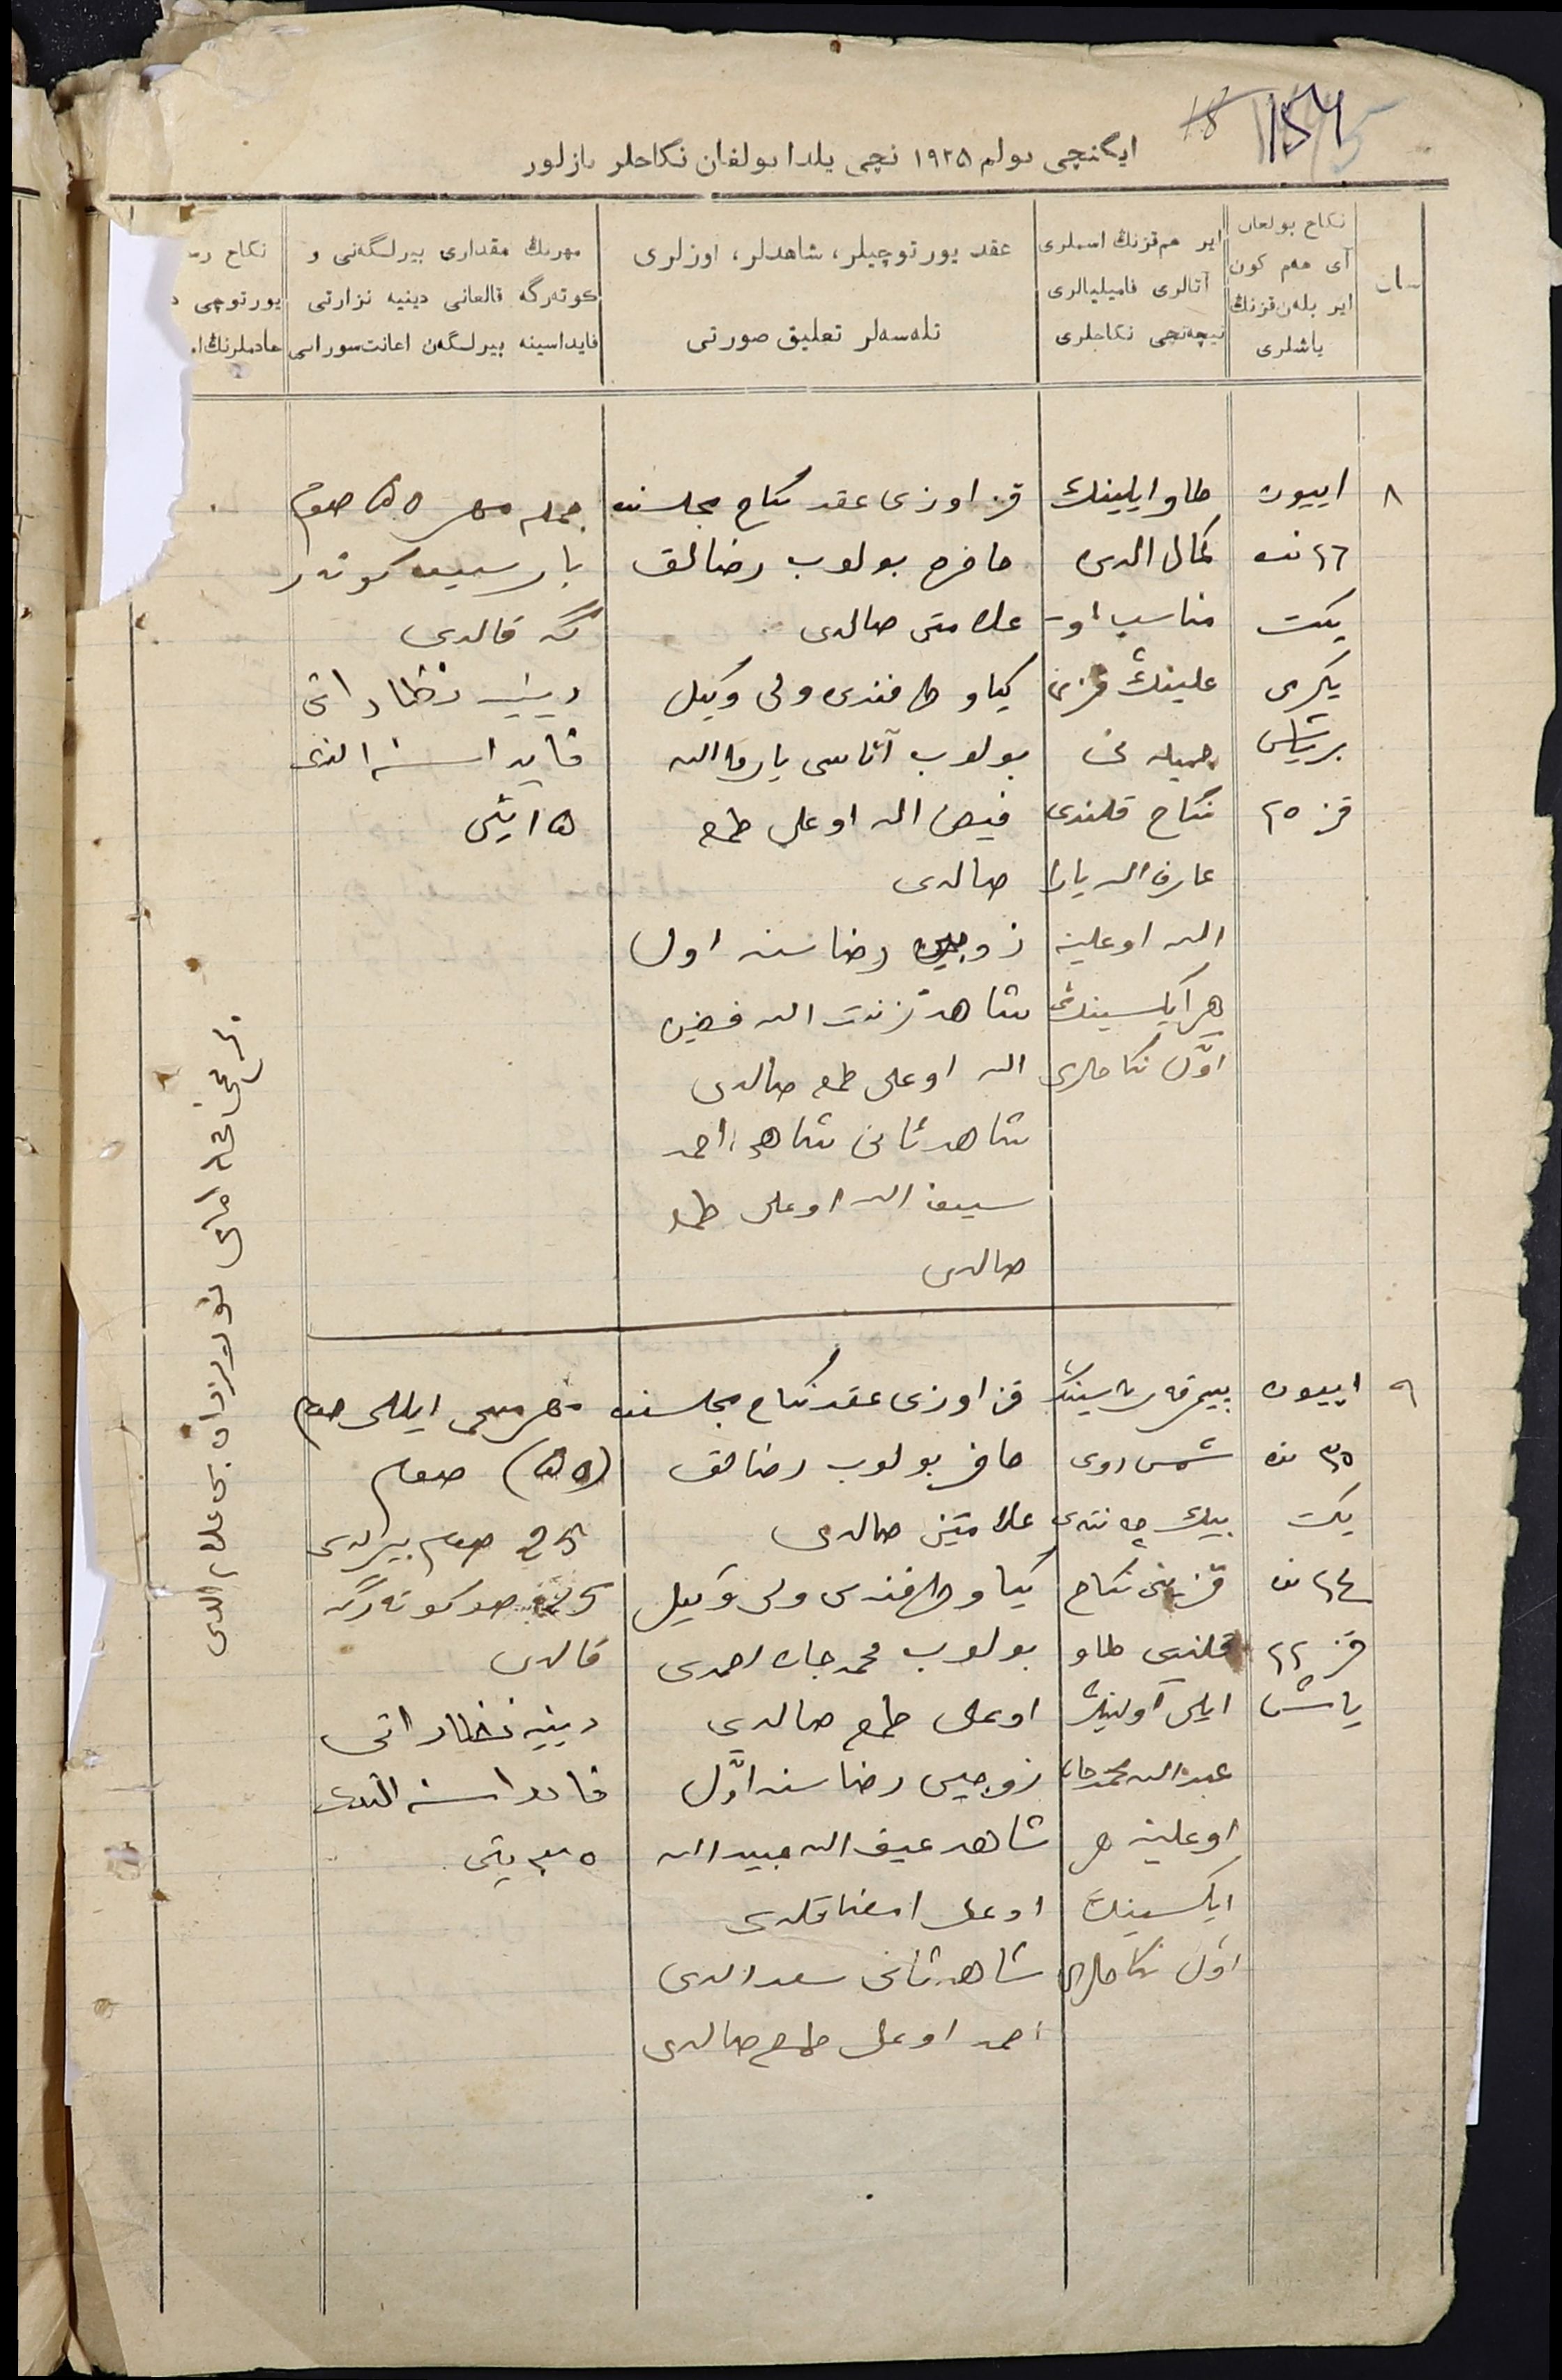 154
18
ایكنچی بولم ۱۹۲۵ نچی یلدا بولغان نكاحلر یازلور
سان
نكاح بولغان
آی هەم كون
ایر بلەن قزنڭ
یاشلری
ایر هم قزنڭ اسملری
آتالری فامیلیالری
نیچەنچی نكاحلری
عقد یورتوچیلر، شاهدلر، اوزلری
تلەسەلر تعلیق صورتی
مهرنڭ مقداری بیرلگەنی و
كوتەرگە قالعانی دینیه نزارتی
فایداسینە بیرلگەن اعانت سوراسی
نكاح
یورتوچی
خادملرنڭ
۸
اییون
۲٦ نده
یكت
یكرمی
بر یاش
قز ۲۰
طاو ایلینڭ
كمال الدین
مناسب او-
علینڭ قزی
جمیله نی
نكاح قلندی
عارف الله یار
الله اوعلینه
هر ایكسینڭ
اوّل نكاحلری
قز اوزی عقد نكاح مجلسنده
حاضر بولوب رضالق
علامتی صالدی
كیاو طرفندن ولی وكیل
بولوب آتاسی یار الله
فیض الله اوعلی طمغه
صالدی
زوجین رضاسنه اول
شاهد زینت الله فیض
الله اوعلی طمغه صالدی
شاهد ثانی شاه احمد
سیف الله اوعلی طمغه
صالدی
جمله مهر ۵۰ صوم
باریسیده كوتەر
گە قالدی
دینیه نظاراتی
فایداسنه الندی
۱۵ تین
۹
اییون
۳۰ نده
یكت
۲٤ نده
قز ۲۲
یاش
شمس
قزینی نكاح
قلندی طاو
ایلی آولینڭ
عبدالله محمدجان
اوعلینه هر
ایكسینڭ
اوّل نكاحلری
قز اوزی عقد نكاح مجلسنده
حاضر بولوب رضالق
علامتین صالدی
كیاو طرفندن ولی وكیل
بولوب محمد جان احمدی
اوعلی طمغه صالدی
زوجین رضاسنه اوّل
شاهد عبید الله
اوعلی امضا قلدی
شاهد ثانی سعدالدین
احمد اوعلی طمغه صالدی
مهر مسمی ایللی صوم
(۵۰) صوم
25 صوم بیرلدی
25 صوم كوتەرگە
قالدی
دینیه نظاراتی
فایداسنه الندی
تین